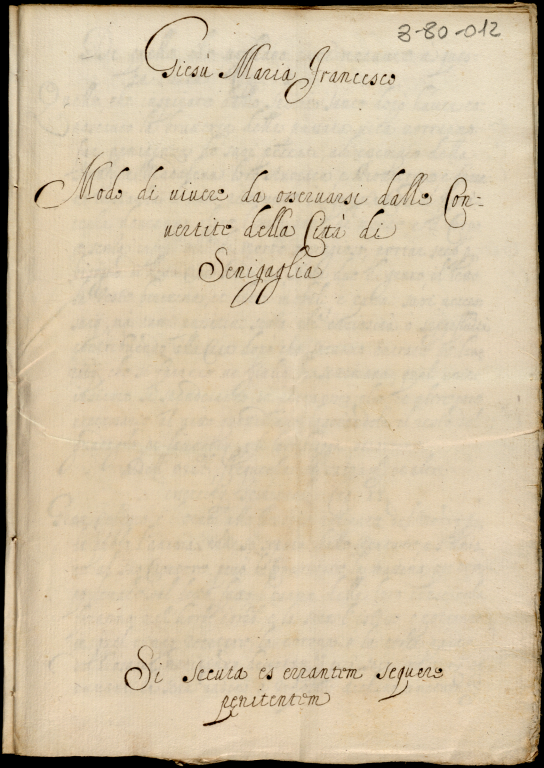 3-80-012
Giesù Maria Francesco
Modo di vivere da osservarsi dalle Con=
vertite della Città di
Senigaglia
Si secuta es errantem sequere
penitentem